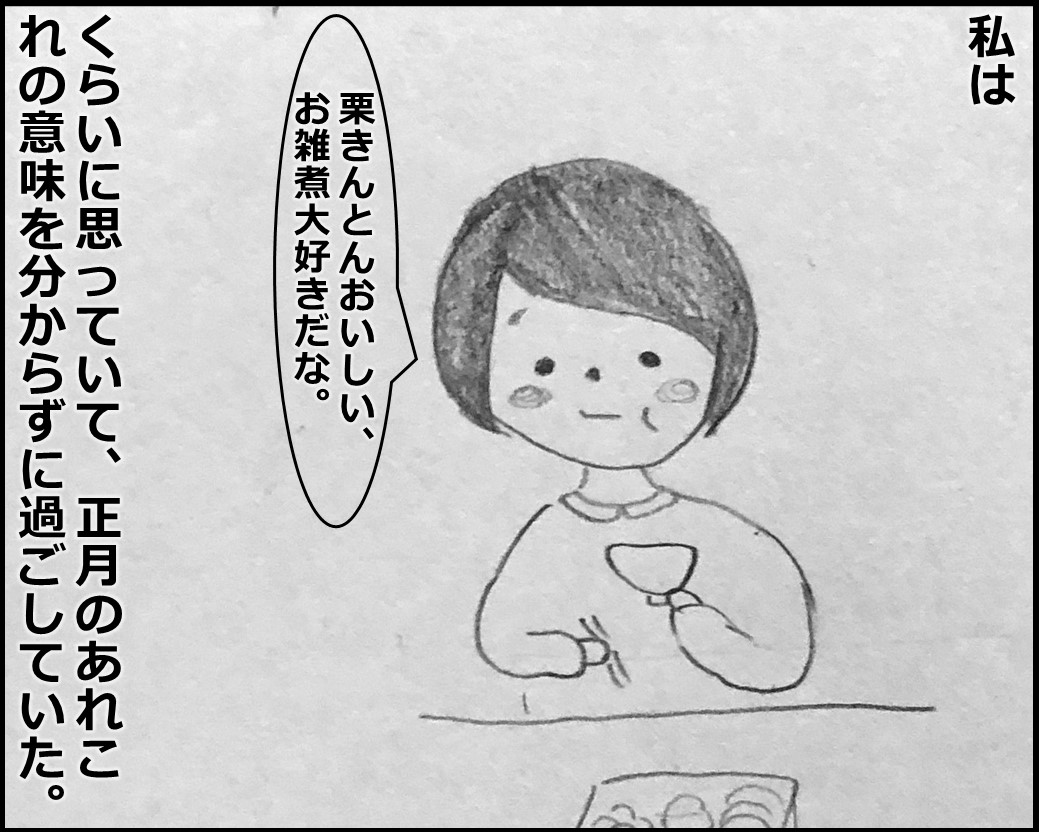 私は
栗きんとんおいしい、
お雑煮大好きだな。
くらいに思っていて、正月のあれこ
れの意味を分からずに過ごしていた。